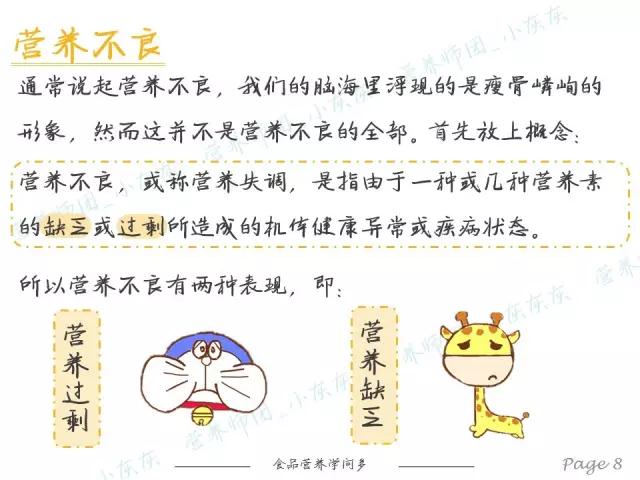 营养不良
通常说起营养不良，我们的脑海里浮现的是瘦骨嶙峋的
形象，然而这并不是营养不良的全部。首先放上概念：
营养不良，或称营养失调，是指由于一种或几种营养素
的缺乏或过剩所造成的机体健康异常或疾病状态。
所以营养不良有两种表现，即：
营养过剩
营养缺乏
食品营养学问多
Page 8
营养师团_小灰灰